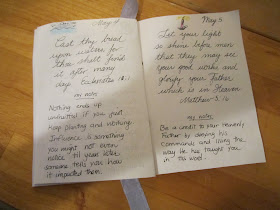 May 4
Cast thy bread
upon waters for
thou shalt find
it after many
days. Ecclesiastes 11:1
my note:
Nothing ends up
unfruitful if you just
keep planting and watering.
Influence is something
you might not even
notice til years later
someone tells you how
it impacted them.
May 5
Let your light
so shine before men
that they may see
your good works and
glorify your Father
which is in Heaven
Matthew 5:16
my note:
Be a credit to your heavenly
Father by obeying His
Commands and living the
way He has taught you
in His word.